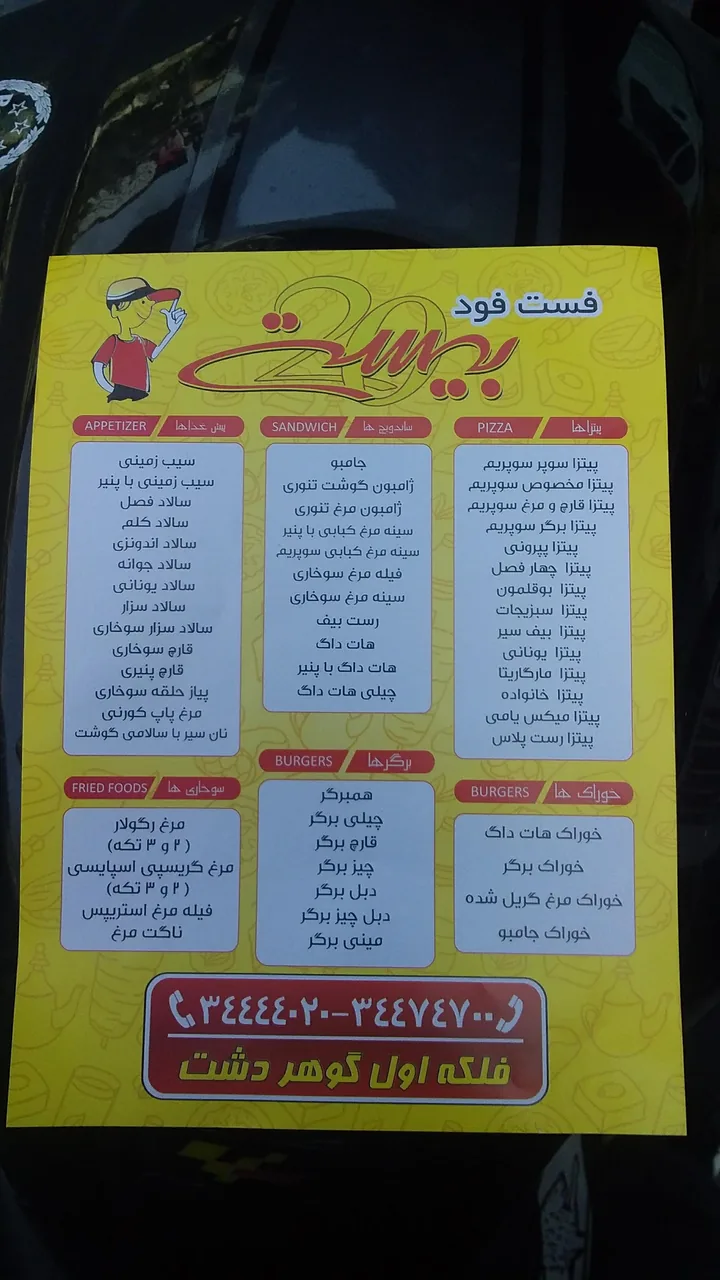 فست فود
بیست
20
پیتزاها / PIZZA
پیتزا سوپر سوپریم
پیتزا مخصوص سوپریم
پیتزا قارچ و مرغ سوپریم
پیتزا برگر سوپریم
پیتزا پپرونی
پیتزا چهار فصل
پیتزا بوقلمون
پیتزا سبزیجات
پیتزا بیف سیر
پیتزا یونانی
پیتزا مارگاریتا
پیتزا خانواده
پیتزا میکس یامی
پیتزا رست پلاس
ساندویچ ها / SANDWICH
جامبو
ژامبون گوشت تنوری
ژامبون مرغ تنوری
سینه مرغ کبابی با پنیر
سینه مرغ کبابی سوپریم
فیله مرغ سوخاری
سینه مرغ سوخاری
رست بیف
هات داگ
هات داگ با پنیر
چیلی هات داگ
پیش غذاها / APPETIZER
سیب زمینی
سیب زمینی با پنیر
سالاد فصل
سالاد کلم
سالاد اندونزی
سالاد جوانه
سالاد یونانی
سالاد سزار
سالاد سزار سوخاری
قارچ سوخاری
قارچ پنیری
پیاز حلقه سوخاری
مرغ پاپ کورنی
نان سیر با سالامی گوشت
خوراک ها / BURGERS
خوراک هات داگ
خوراک برگر
خوراک مرغ گریل شده
خوراک جامبو
برگرها / BURGERS
همبرگر
چیلی برگر
قارچ برگر
چیز برگر
دبل برگر
دبل چیز برگر
مینی برگر
سوخاری ها / FRIED FOODS
مرغ رگولار
(۲ و ۳ تکه)
مرغ کریسپی اسپایسی
(۲ و ۳ تکه)
فیله مرغ استریپس
ناگت مرغ
۳۴۴۴۴۰۲۰-۳۴۴۷۴۷۰۰
فلکه اول گوهر دشت